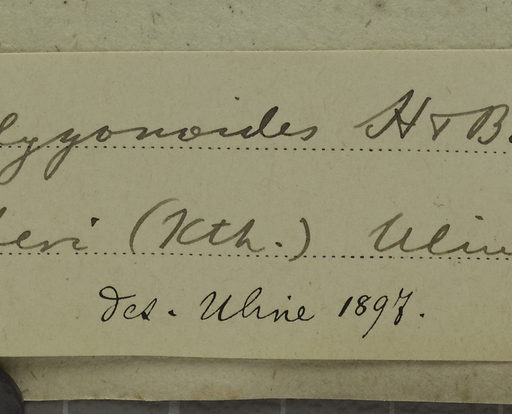 lygonoides H & B.
leri (Kth.) Uline
det. Uline 1897.